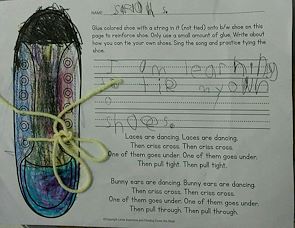 NAME
Glue colored shoe with a string in it (not tied) onto b/w shoe on this
page to reinforce shoe. Only use a small amount of glue. Write about
how you can tie your own shoes. Sing the song and practice tying the
shoe.
I am learning
to tie my own
shoes.
Laces are dancing. Laces are dancing.
Then criss cross. Then criss cross.
One of them goes under. One of them goes under.
Then pull tight. Then pull tight.
Bunny ears are dancing. Bunny ears are dancing.
Then criss cross. Then criss cross.
One of them goes under. One of them goes under.
Then pull through. Then pull through.